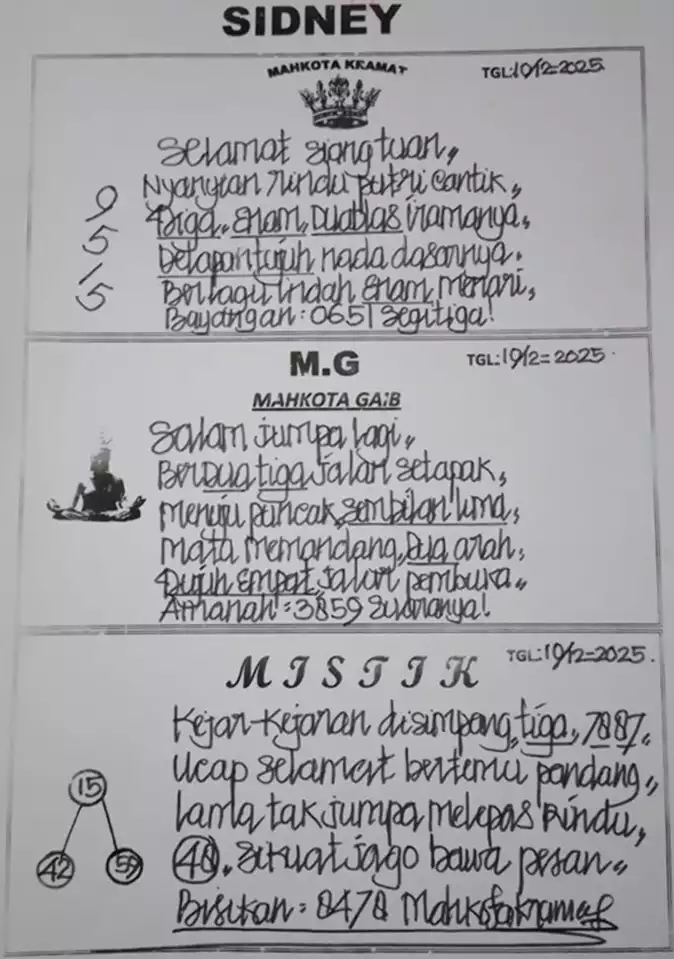 SIDNEY
MAHKOTA KRAMAT
TGL:19/12=2025
Selamat siang tuan,,
Nyanyian rindu putri cantik,,
9
Tiga,, enam, Duablas iramanya,
5
Delapan tujuh nada dasarnya.
15
Berlagu indah enam, menari,
Bayangan: 0651 segitiga!
M.G
TGL:19/12=2025
MAHKOTA GAIB
Salam jumpa lagi,,
Berdua tiga jalan setapak,
menuju puncak, sembilan lima,
mata memandang, Dua arah,
Tujuh empat, jalan pembuka,,
Amanah: 3859 suaranya!
MISTIK
TGL:19/12=2025.
Kejar-Kejaran disimpang, tiga, 7887,,
Ucap selamat bertemu pandang,,
15
Lama tak jumpa melepas Rindu,
42 59
48. sikuat jago bawa pesan,,
Bisikan: 8478 Mahkotakramat